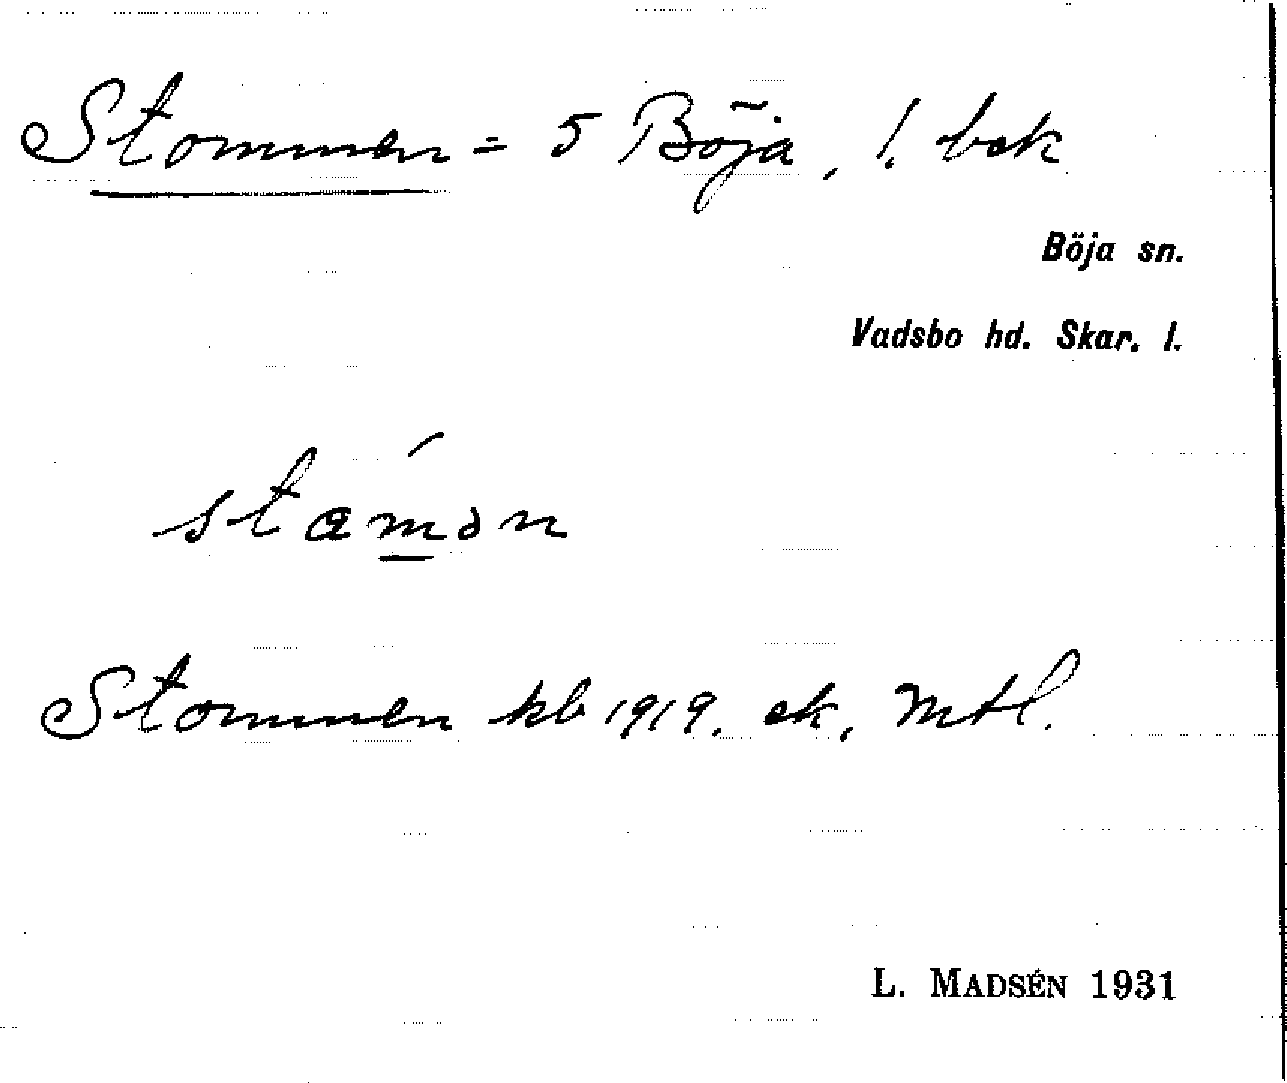 Stommen = 5 Böja, l. bek
Böja sn.
Vadsbo hd. Skar. l.
stamən
Stommen kb 1919, ek, mtl.
L. MADSÉN 1931